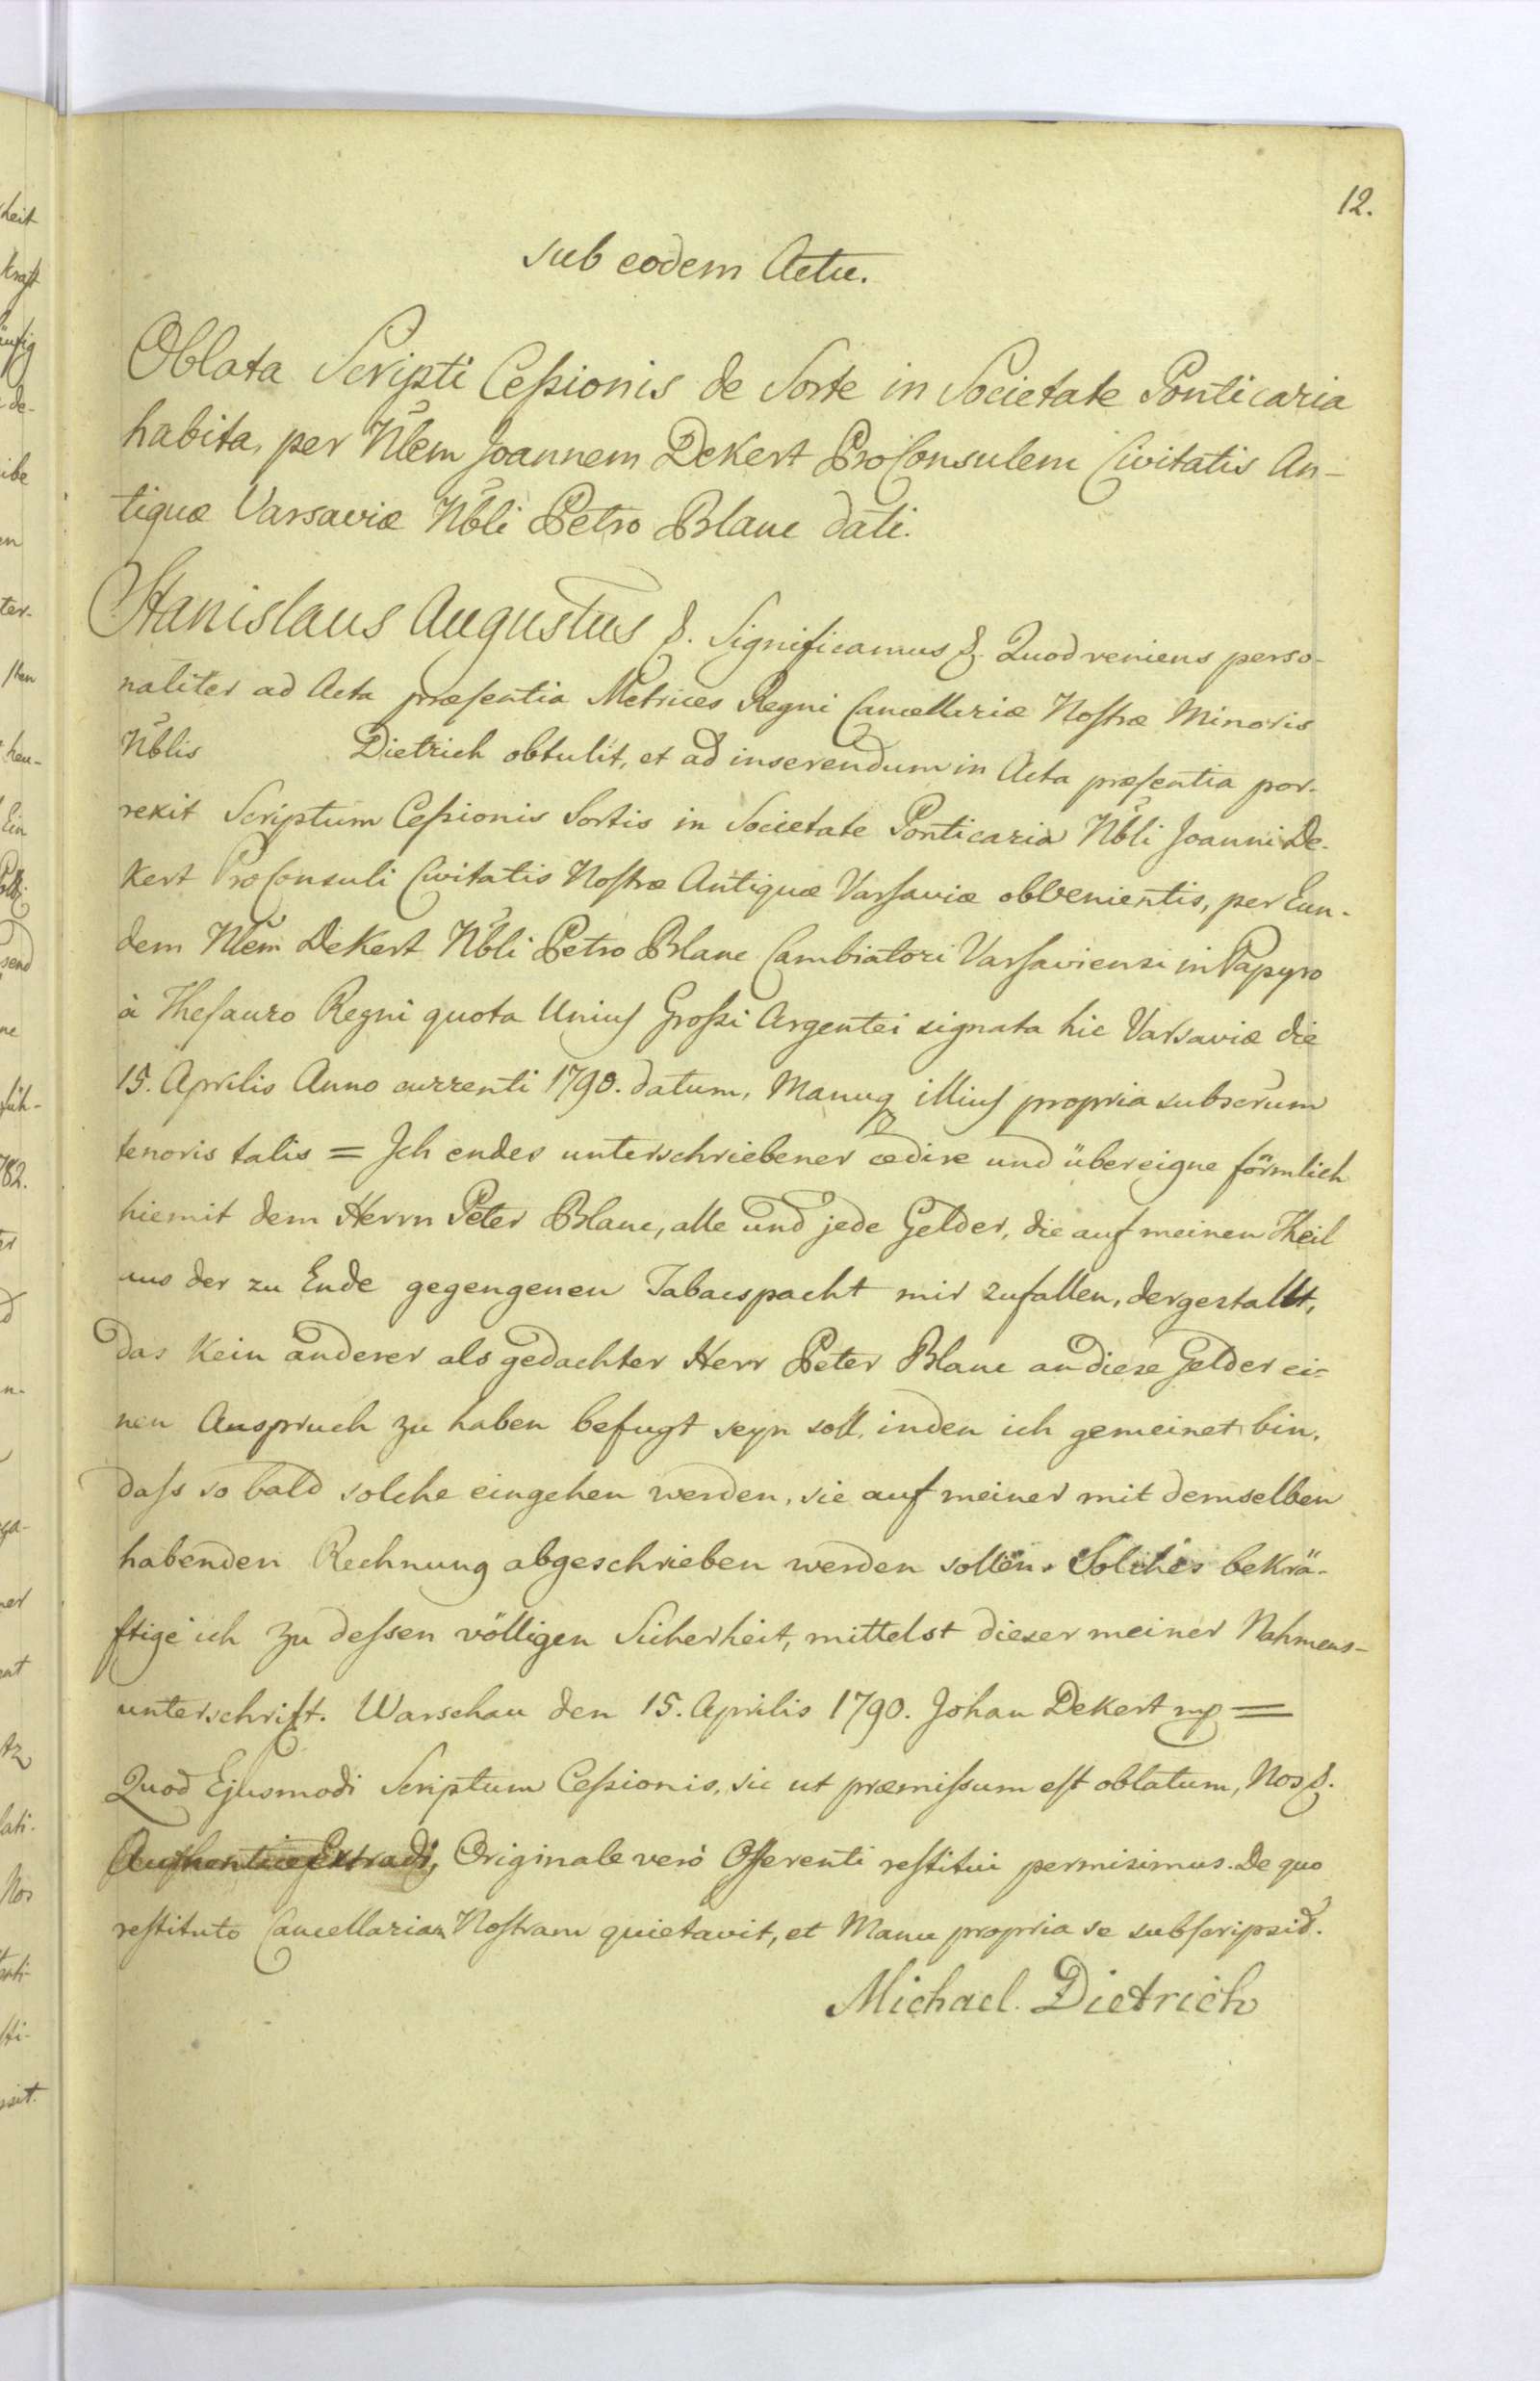 12.
sub eodem Actu.
Oblata Scripti Cessionis de Sorte in Societate Ponticaria
habita, per Nlem Joannem Dekert ProConsulem Civitatis An-
tiquæ Varsaviæ Nbli Petro Blanc dati.
Stanislaus Augustus &. Significamus &. Quod veniens perso-
naliter ad Acta præsentia Metrices Regni Cancellariæ Nostræ Minoris
Nblis Dietrich obtulit, et ad inserendum in Acta præsentia por-
rexit Scriptum Cessionis Sortis in Societate Ponticaria Nbli Joanni De-
kert ProConsuli Civitatis Nostræ Antiquæ Varsaviæ obvenientis, per Eun-
dem Nlem Dekert Nbli Petro Blanc Cambiatori Varsaviensi in Papyro
à Thesauro Regni quota Unius Grossi Argentei signata hic Varsaviæ die
15. Aprilis Anno currenti 1790. datum, Manuq illius propria subscrum
tenoris talis = Ich endes unterschriebener cedire und übereigne förmlich
hiemit dem Herrn Peter Blanc, alle und jede Gelder, die auf meinen Theil
aus der zu Ende gegengenen Tabacspacht mir zufallen, dergestallt,
das kein anderer als gedachter Herr Peter Blanc an diese Gelder ei-
nen Anspruch zu haben befugt seyn soll, inden ich gemeinet bin,
dass so bald solche eingehen werden, sie auf meiner mit demselben
habenden Rechnung abgeschrieben werden sollen. Solches bekrä-
ftige ich zu dessen völligen Sicherheit, mittelst dieser meiner Nahmens-
unterschrift. Warschau den 15. Aprilis 1790. Johan Dekert mp =
Quod Ejusmodi Scriptum Cessionis, sic ut præmissum est oblatum, Nos &.
Authentice Extradi, Originale verò Offerenti restitui permisimus. De quo
restituto Cancellariam Nostram quietavit, et Manu propria se subscripsit.
Michael Dietrich